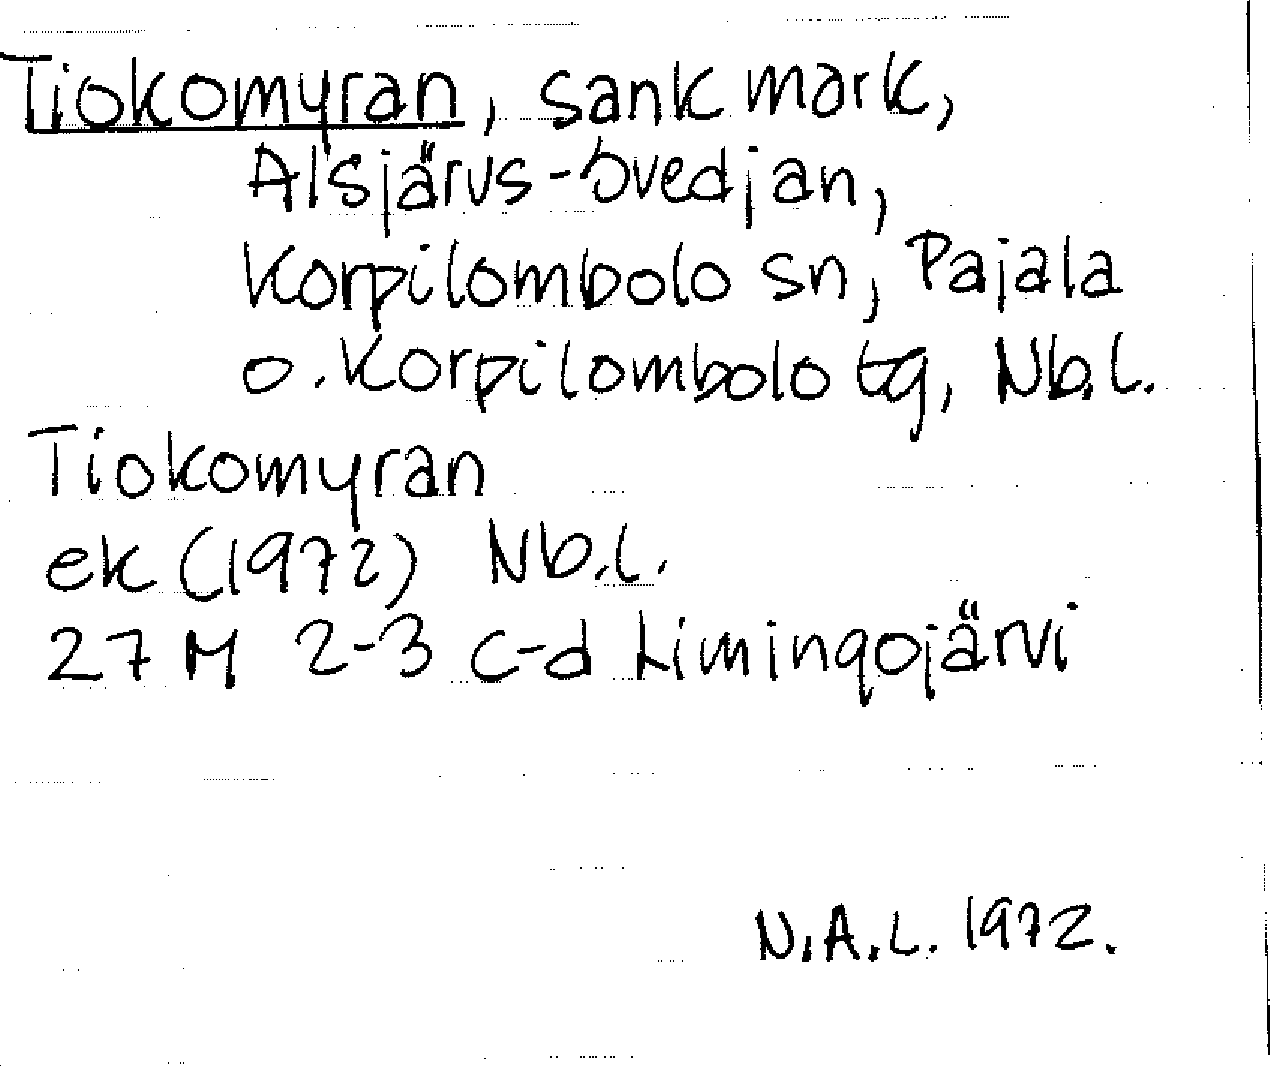 Tiokomyran, sank mark,
Alsjärvs-Svedjan,
Korpilombolo sn, Pajala
o. Korpilombolo tg, Nb.l.
Tiokomyran
ek (1972) Nb.l.
27 M 2-3 c-d Limingojärvi
N.A.L. 1972.